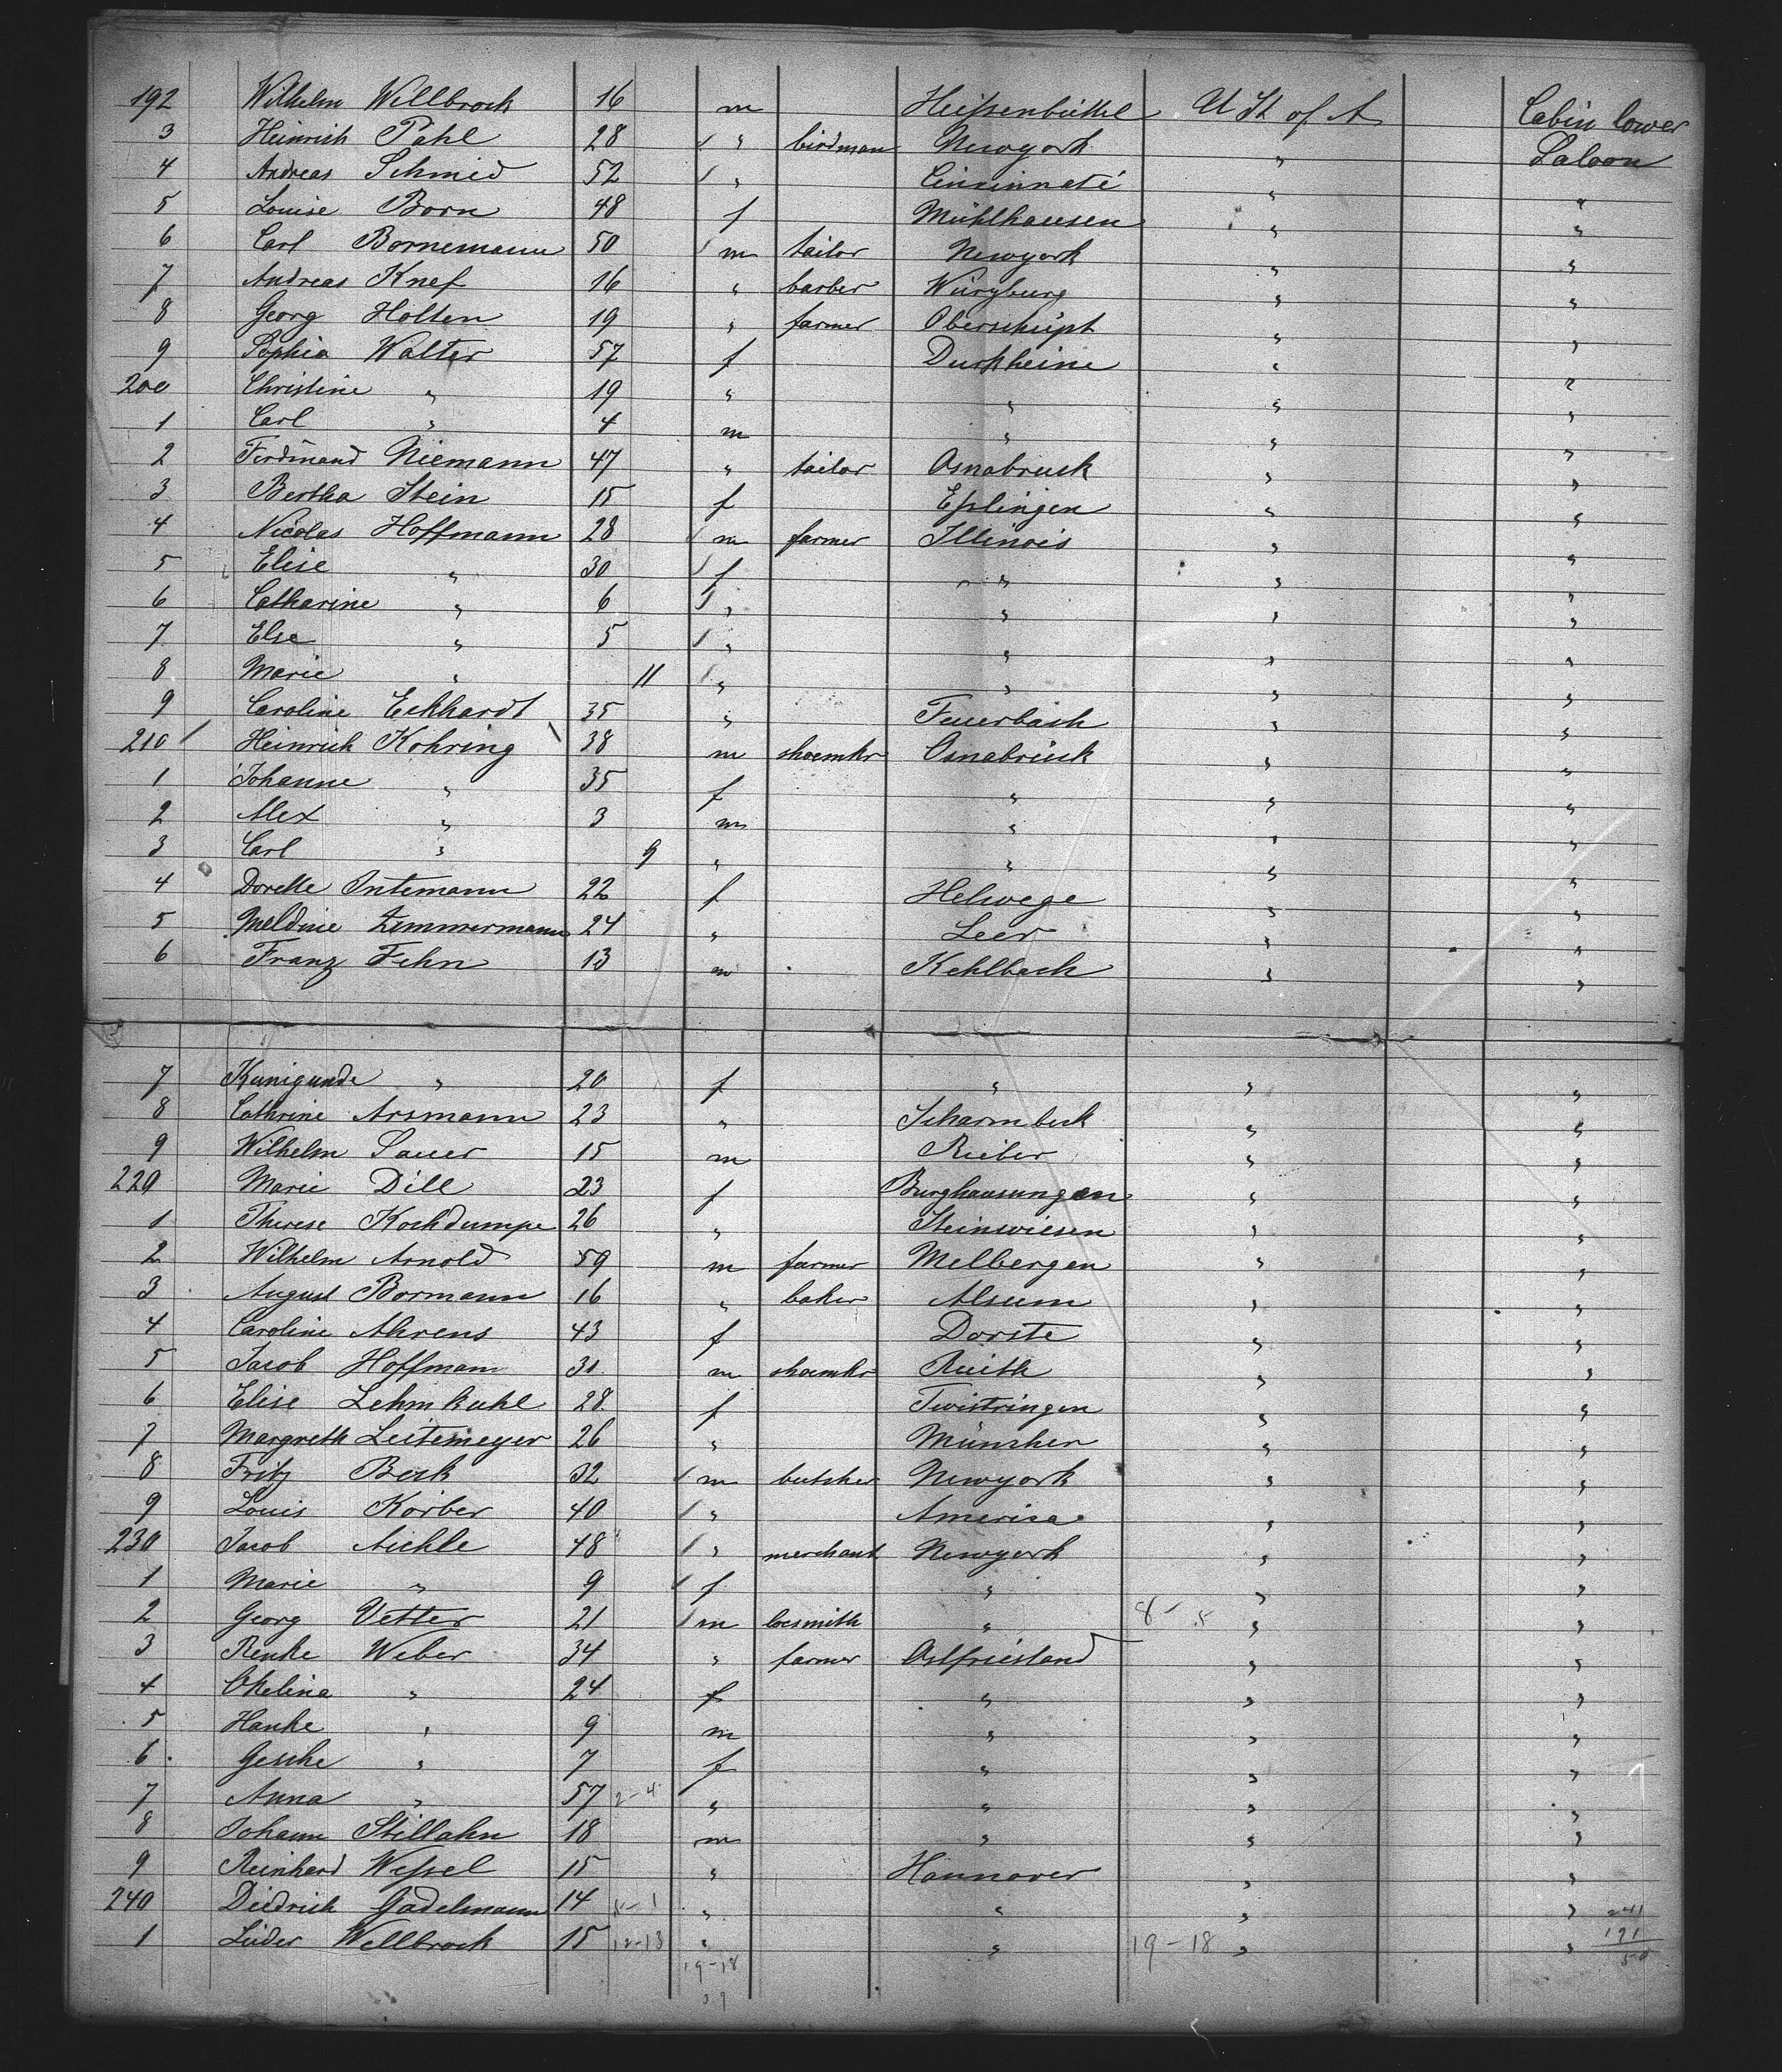 192 Wilhelm Willbrock 16 m Heißenbüttel U St of A Cabin lower
3 Heinrich Pahl 28 " birdman Newyork " Saloon
4 Andreas Schmid 52 " Cincinnati " "
5 Louise Born 48 f Mühlhausen " "
6 Carl Bornemann 50 m tailor Newyork " "
7 Andreas Knef 16 " barber Würzburg " "
8 Georg Holten 19 " farmer Oberschüpt " "
9 Sophia Walter 57 f Durkheine " "
200 Christine " 19 " " " "
1 Carl " 4 m " " "
2 Ferdinand Niemann 47 " tailor Osnabruck " "
3 Bertha Stein 15 f Eßlingen " "
4 Nicolas Hoffmann 28 m farmer Illinois " "
5 Elise " 30 f " " "
6 Catharine " 6 " " " "
7 Else " 5 " " " "
8 Marie " 11 " " " "
9 Caroline Eckhardt 35 " Feuerbach " "
210 Heinrich Kohring 38 m shoemkr Osnabrück " "
1 Johanne " 35 f " " "
2 Alex " 3 m " " "
3 Carl " 9 " " " "
4 Dorette Intemann 22 f Helwege " "
5 Meldine Zimmermann 24 " Leer " "
6 Franz Fehn 13 m Kehlbach " "
7 Kunigunde " 20 f " " "
8 Cathrine Arsmann 23 " Scharmbeck " "
9 Wilhelm Sauer 15 m Rieber " "
220 Marie Dill 23 f Burghausungen " "
1 Therese Kochdumpe 26 " Steinwiesen " "
2 Wilhelm Arnold 59 m farmer Melbergen " "
3 August Bormann 16 " baker Alsum " "
4 Caroline Ahrens 43 f Dorste " "
5 Jacob Hoffmann 30 m shoemkr Ruith " "
6 Elise Lehmkuhl 28 f Twistringen " "
7 Margreth Leitemeyer 26 " München " "
8 Fritz Beck 32 m butcher Newyork " "
9 Louis Körber 40 " America " "
230 Jacob Aichle 48 " merchant Newyork " "
1 Marie " 9 f " " "
2 Georg Vetter 21 m locsmith " 8 - 5 " "
3 Renke Weber 34 " farmer Ostfriesland " "
4 Okelina " 24 f " " "
5 Hanke " 9 m " " "
6 Gesche " 7 f " " "
7 Anna " 57 2-4 " " " "
8 Johann Stillahn 18 m " " "
9 Reinhard Weßel 15 " Hannover " "
240 Diedrich Gadelmann 14 " " " " 241
1 Lüder Wellbrock 15 12-13 " " 19-18 " " 191
19-18 50